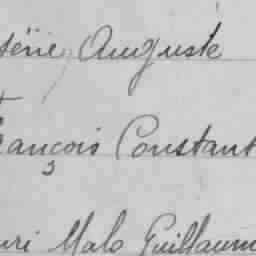 série Auguste
rançois Constant
nri Malo Guillaum